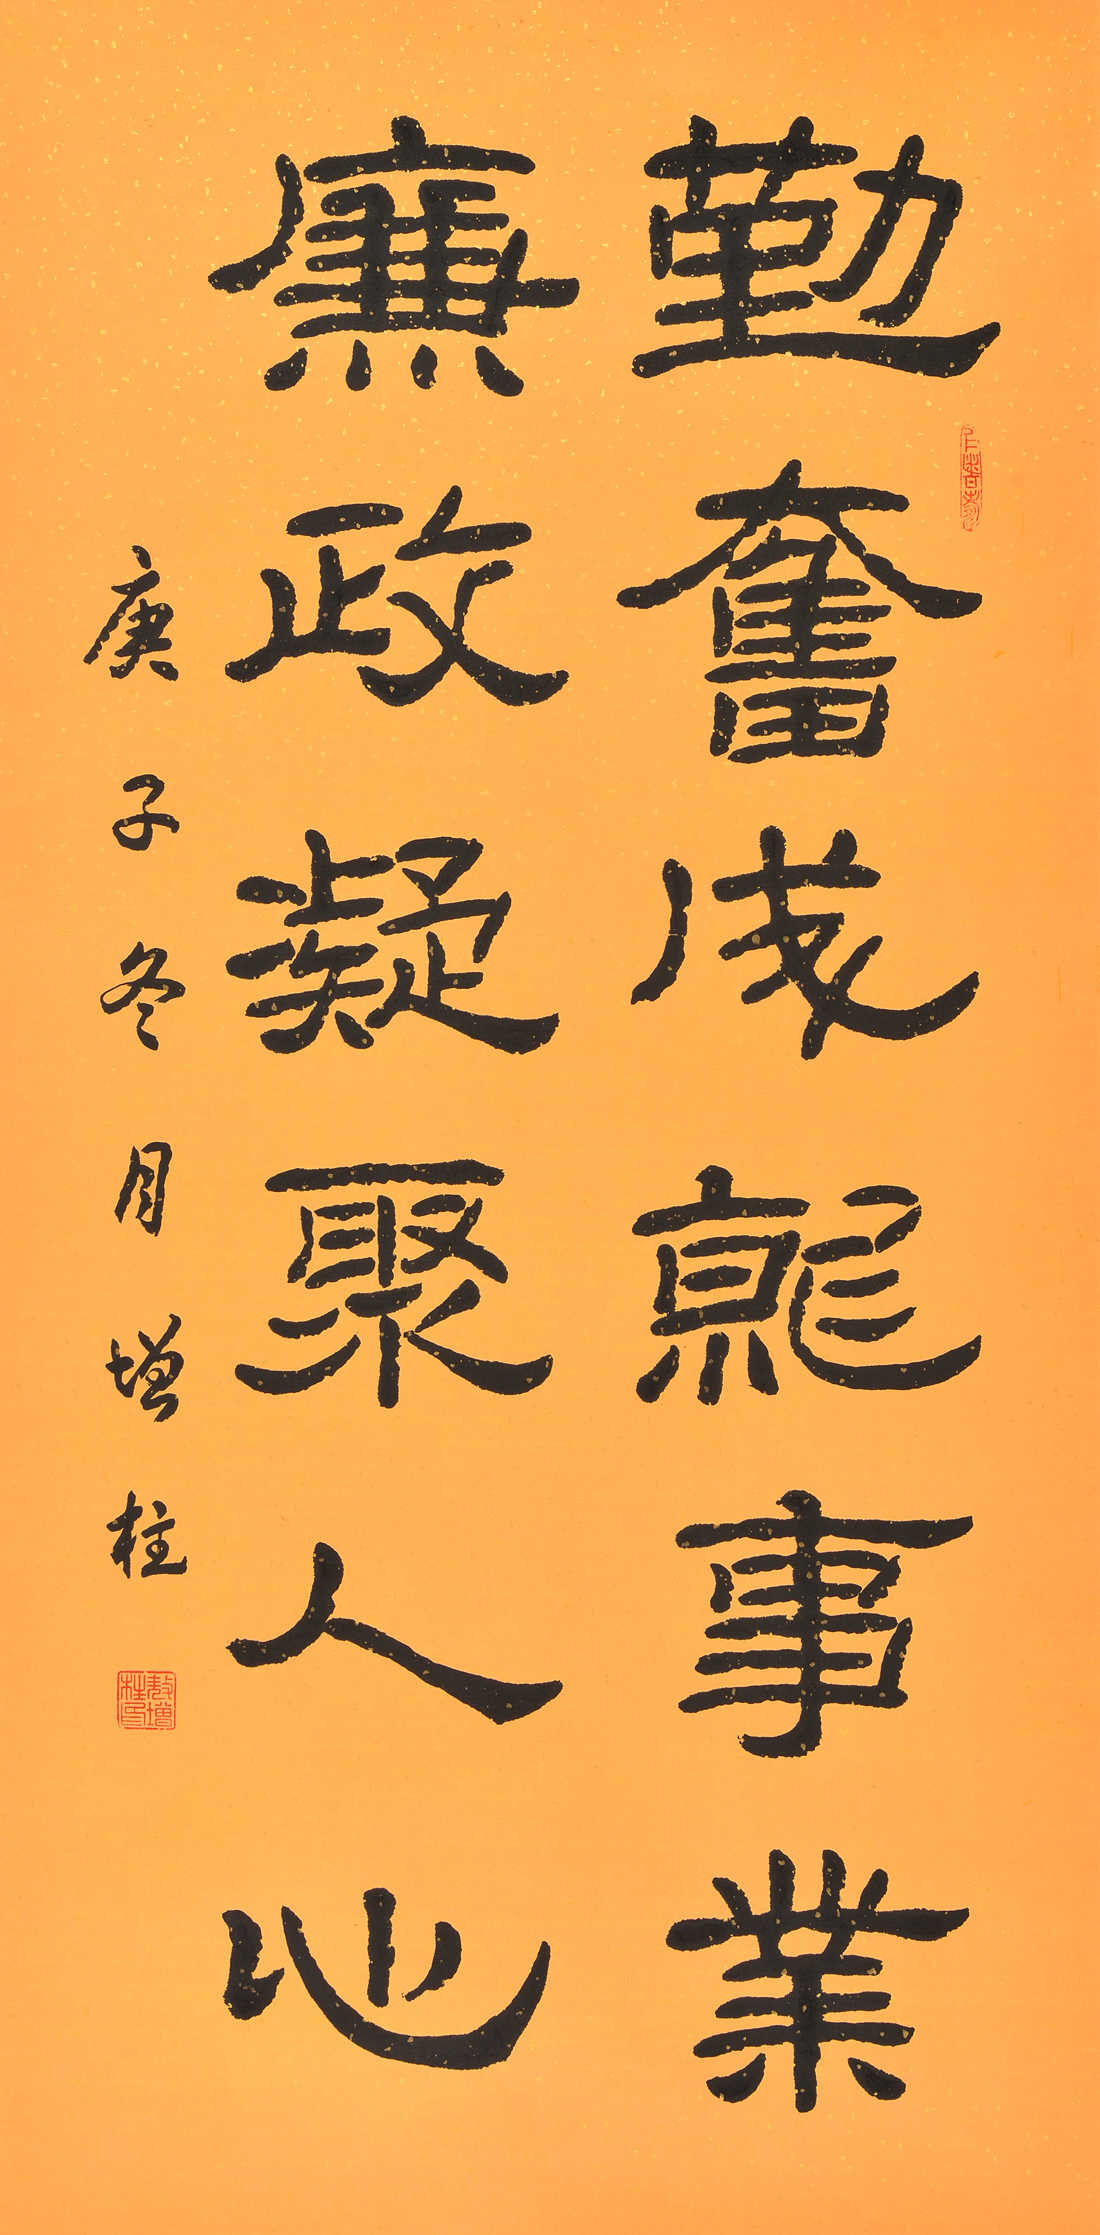 勤奮成就事業
廉政凝聚人心
庚子冬月增柱